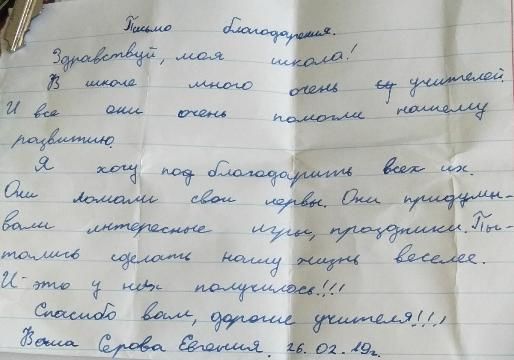 Письмо благодарения.
Здравствуй, моя школа!
В школе много очень учителей.
И все они очень помогли нашему
развитию.
Я хочу под благодарить всех их.
Они ломали свои нервы. Они придумы-
вали интересные игры, праздники. Пы-
тались сделать нашу жизнь веселее.
И это у них получилось!!!
Спасибо вам, дорогие учителя!!!
Ваша Серова Евгения. 26.02.19г.